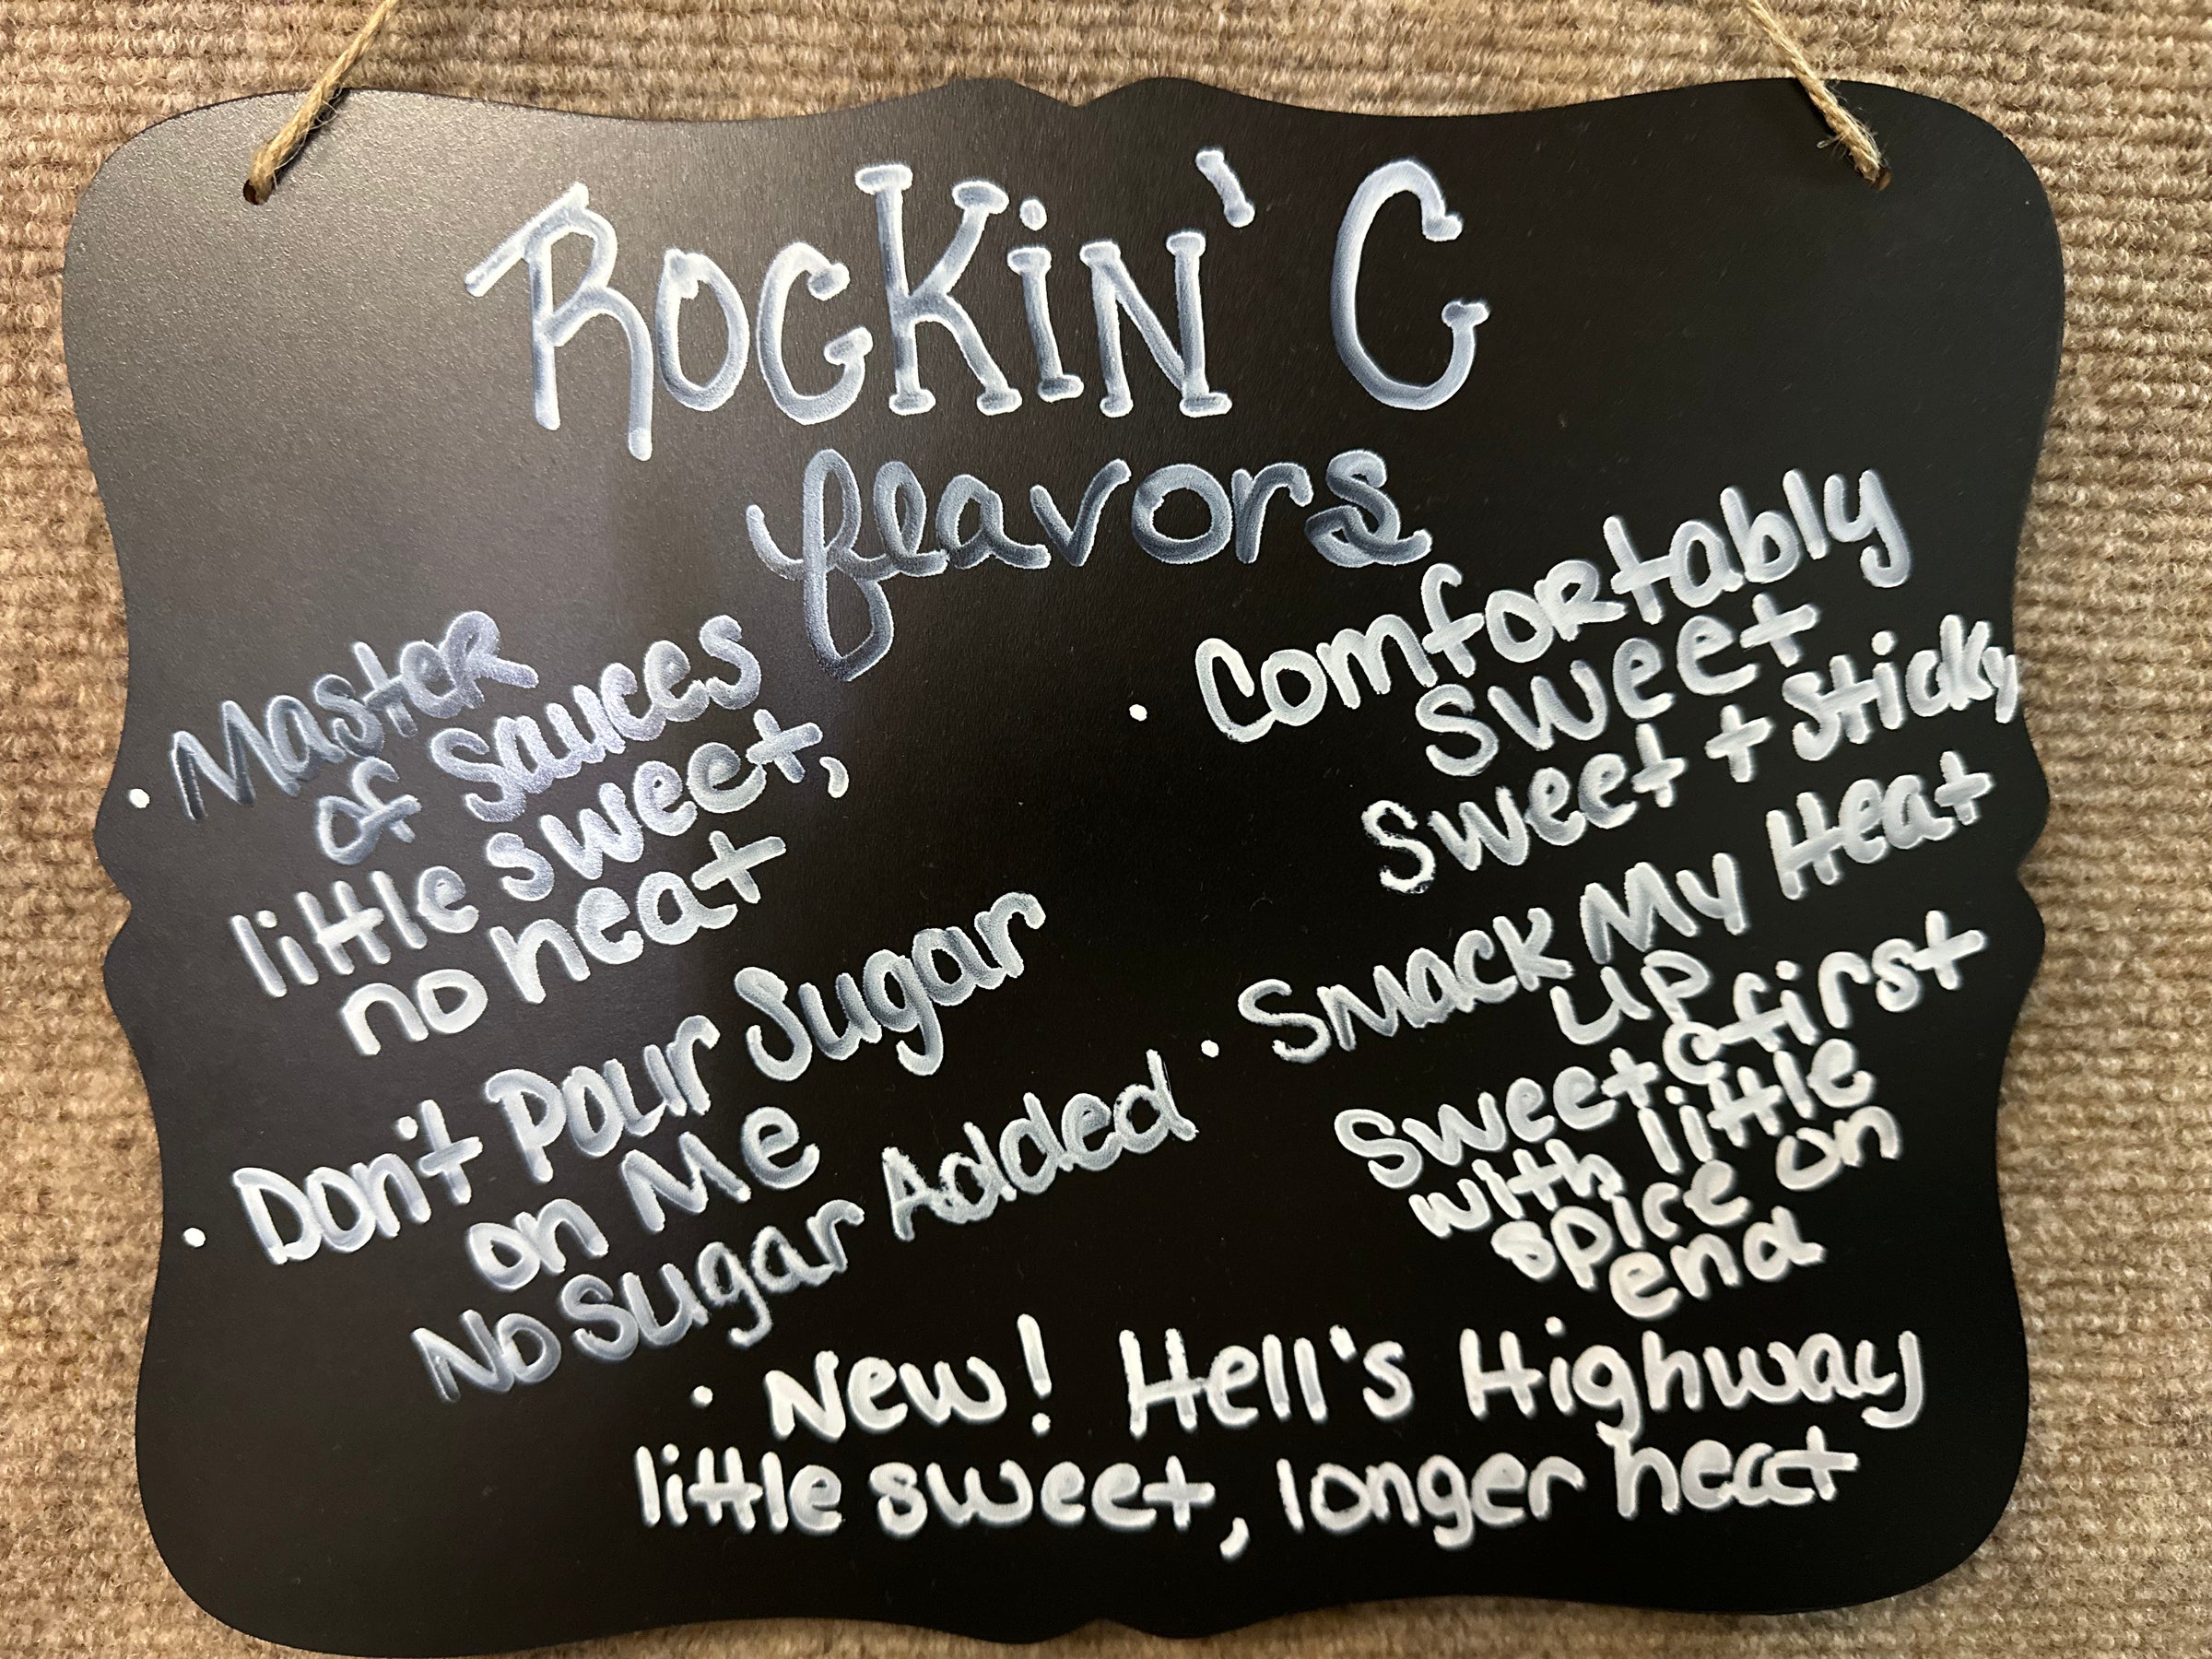 Rockin' C
flavors
• Master
of Sauces
little sweet,
no heat
• Don't Pour Sugar
on Me
No Sugar Added
• Comfortably
Sweet
Sweet + Sticky
• Smack My Heat
Up
Sweet @ first
with little
spice on
end
• New! Hell's Highway
little sweet, longer heat